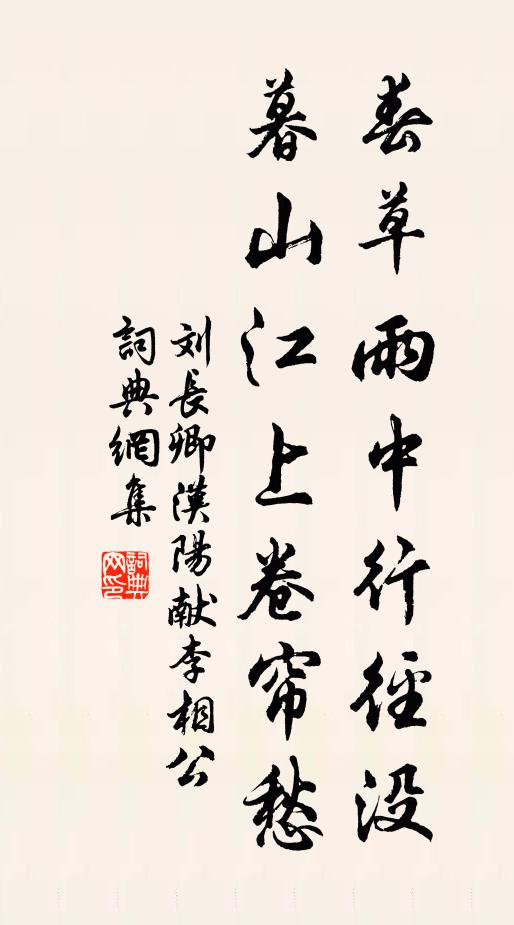 春草雨中行徑沒
暮山江上卷帘愁
刘長卿漢陽献李相公
詞典網集
詞典网印